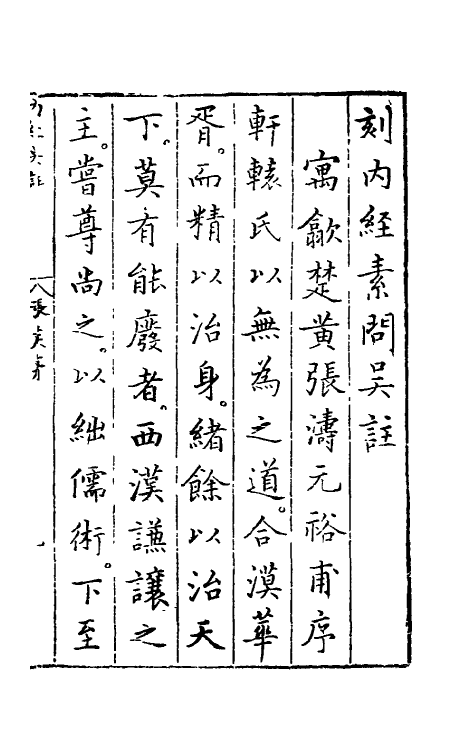 刻内経素問吳註
寓歙楚黄張濤元裕甫序
軒轅氏以無為之道。合漠華
胥。而精以治身。緒餘以治天
下。莫有能廢者。西漢謙讓之
主。嘗尊尚之。以絀儒術。下至